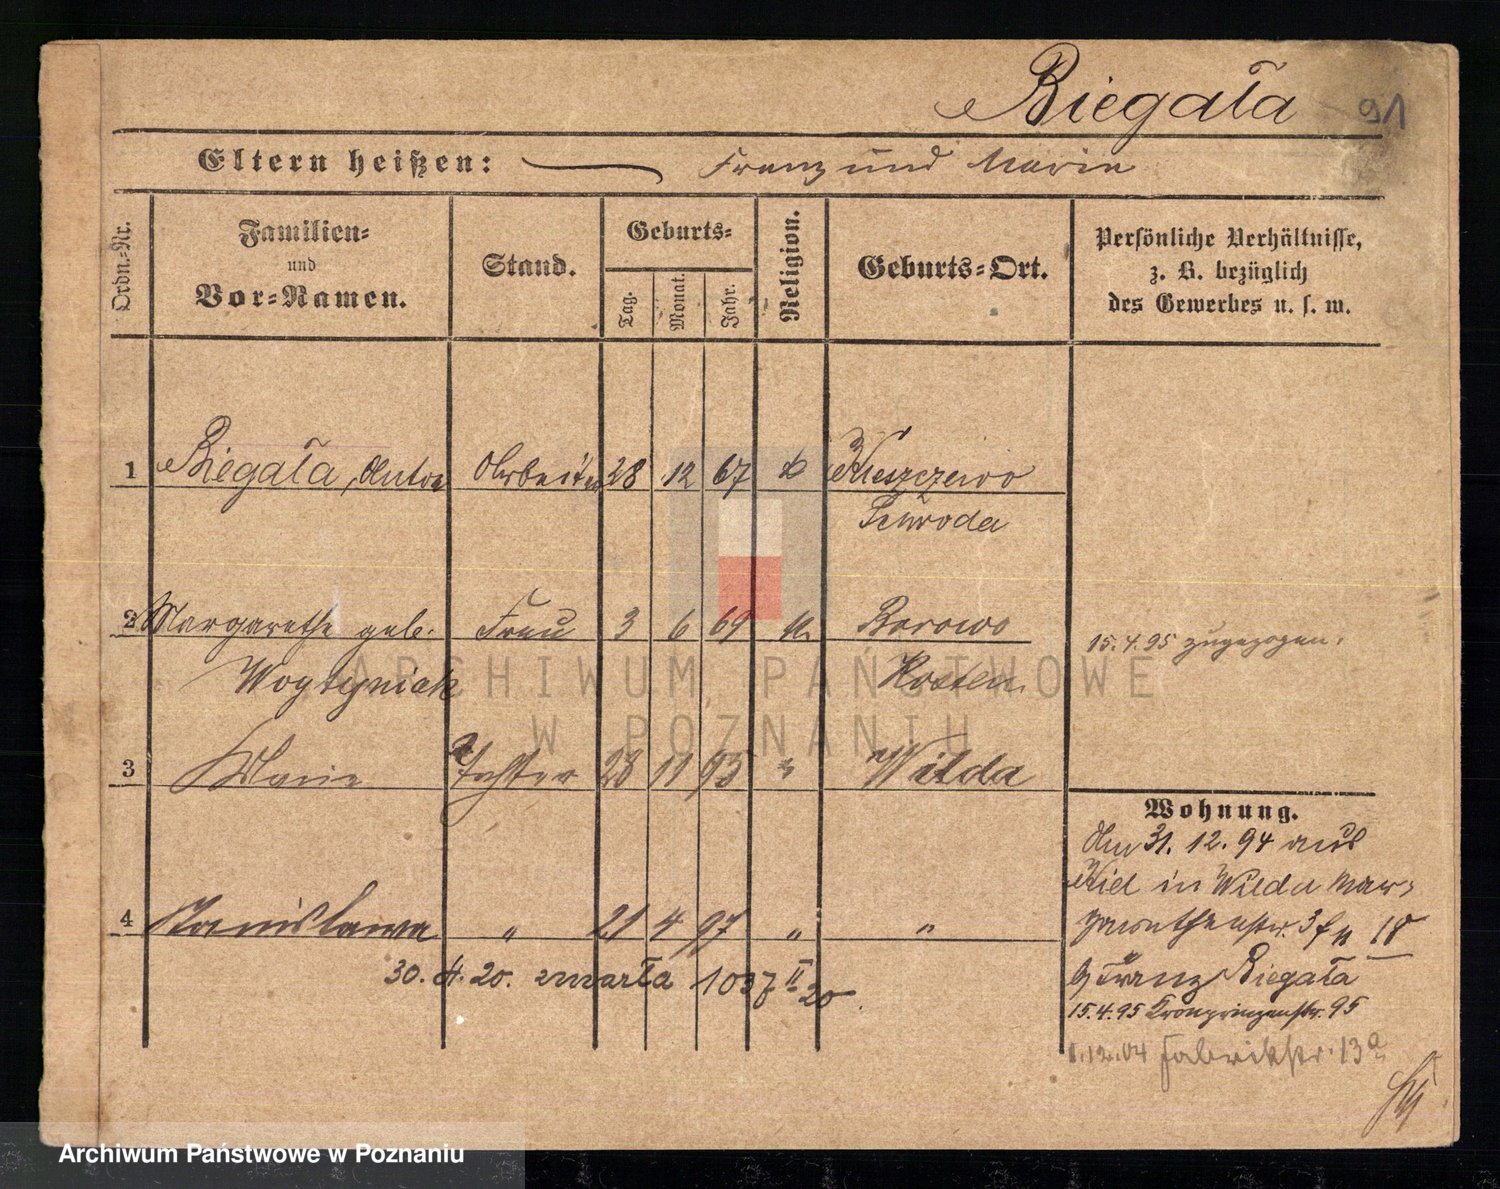 Biegała 91
Eltern heißen: Franz und Marie
Ordn.-Nr.
Familien-
und
Vor-Namen.
Stand.
Geburts-
Tag.
Monat.
Jahr.
Religion.
Geburts-Ort.
Persönliche Verhältnisse,
z. B. bezüglich
des Gewerbes u. s. w.
1 Biegała, Anton Arbeiter 28 12 67 k Kleszczewo
Schroda
2 Margarethe geb. Frau 3 6 69 k. Borowo
Woytyniak Kosten
15.4.95 zugezogen.
3 Marie Tochter 28 11 95 " Wilda
4 Stanislawa " 21 4 97 " "
30. 4. 20. zmarła 1037 II 20
Wohnung.
Am 31. 12. 94 aus
Kiel in Wilda Mar-
garethenstr. 3 18
b/ Franz Biegała
15.4.95 Kronprinzenstr. 95
1.12.04 Fabrikstr. 13a
ARCHIWUM PAŃSTWOWE
W POZNANIU
Archiwum Państwowe w Poznaniu